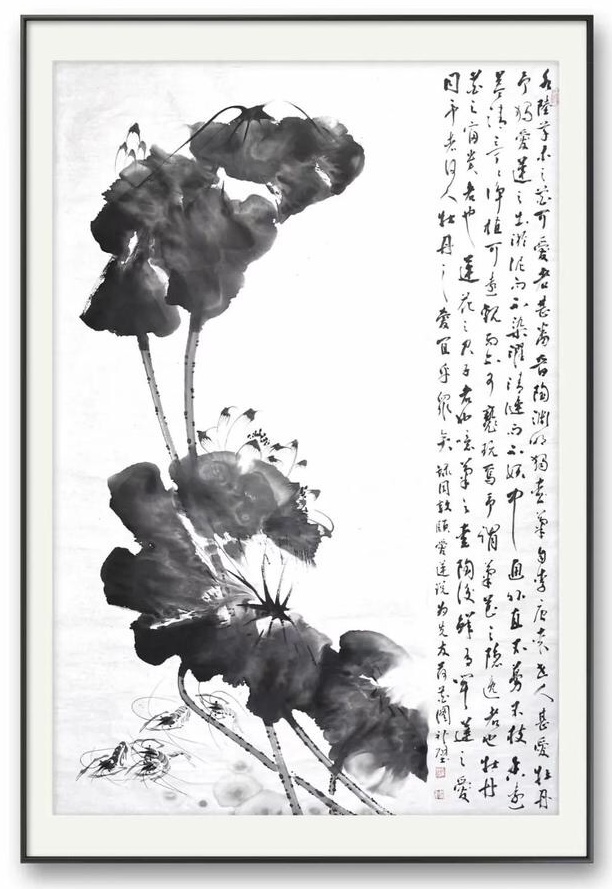 水陸草木之花可愛者甚蕃晉陶淵明獨愛菊自李唐來世人甚愛牡丹
予獨愛蓮之出淤泥而不染濯清漣而不妖中通外直不蔓不枝香遠
益清亭々淨植可遠觀而不可褻玩焉予謂菊花之隱逸者也牡丹
花之富貴者也蓮花之君子者也噫菊之愛陶後鮮有聞蓮之愛
同予者何人牡丹之愛宜乎眾矣 錄周敦頤愛蓮說為先友荷花圖